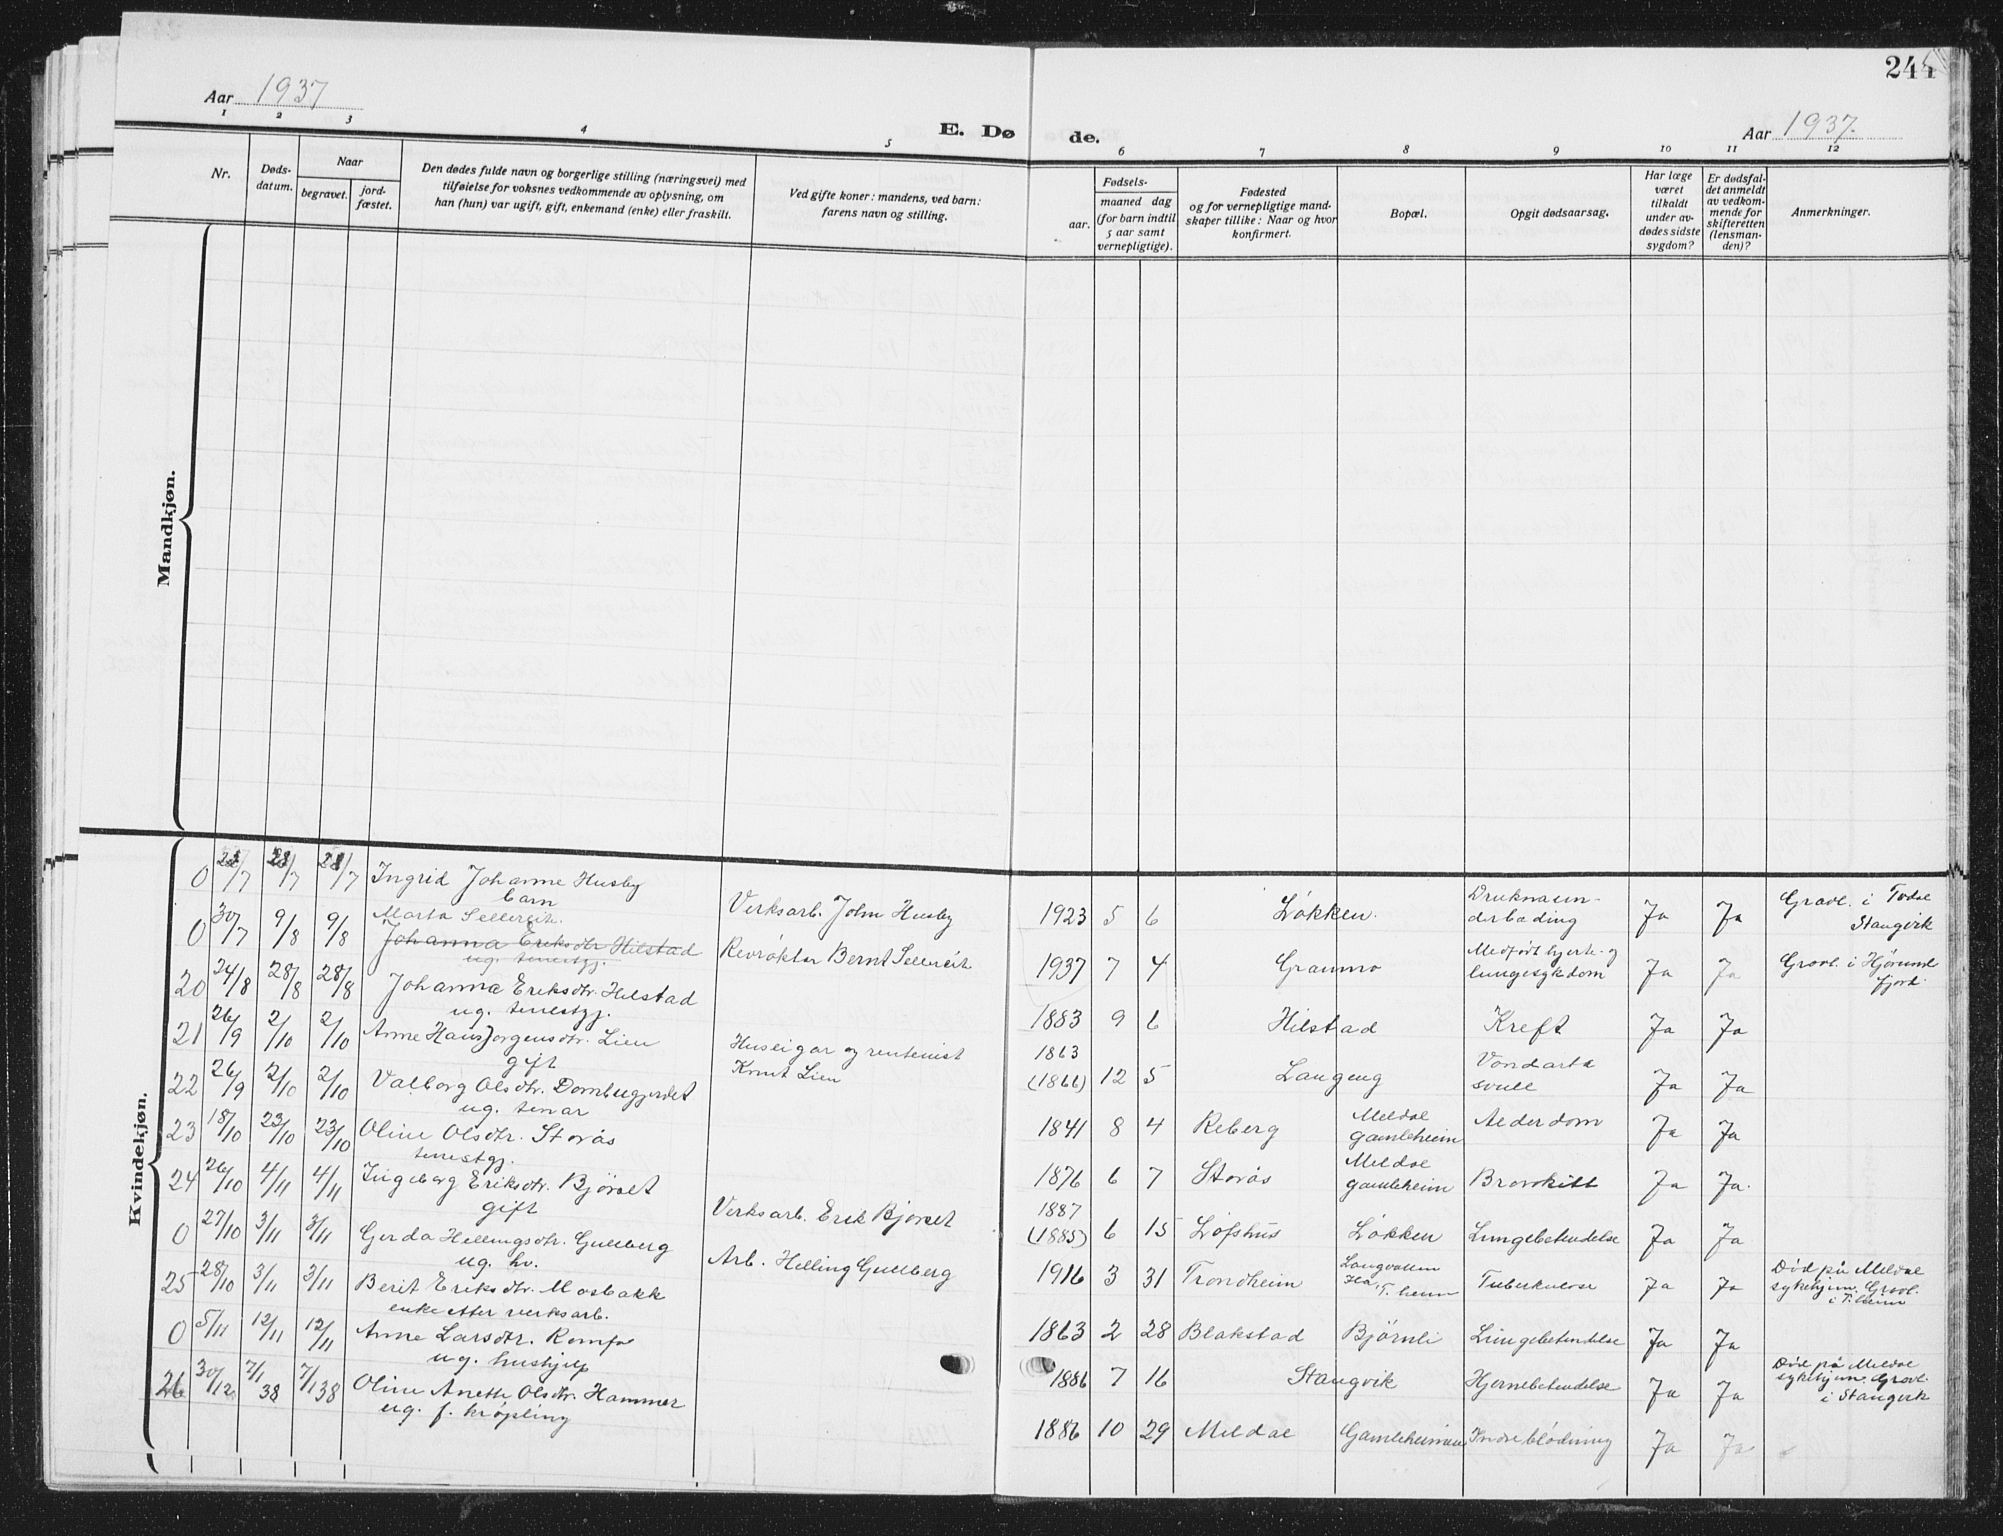 Aar 1937
E. Dø
de.
244
Aar 1937.
1 2 3 4 5 6 7 8 9 10 11 12
Nr.
Døds-
datum.
Naar
begravet.
jord-
fæstet.
Den dødes fulde navn og borgerlige stilling (næringsvei) med
tilføielse for voksnes vedkommende av oplysning, om
han (hun) var ugift, gift, enkemand (enke) eller fraskilt.
Ved gifte koner: mandens, ved barn:
farens navn og stilling.
Fødsels-
aar.
maaned dag
(for barn indtil
5 aar samt
vernepligtige).
Fødested
og for vernepligtige mand-
skaper tillike: Naar og hvor
konfirmert.
Bopæl.
Opgit dødsaarsag.
Har læge
været
tilkaldt
under av-
dødes sidste
sygdom?
Er dødsfal-
det anmeldt
av vedkom-
mende for
skifteretten
(lensman-
den)?
Anmerkninger.
Mandkjøn.
Kvindekjøn.
0 23/7 28/7 28/7 Ingrid Johanne Husby
barn
Verksarb. John Husby 1923 5 6 Løkken. Ja Ja Gravl. i Todal
Stangvik
0 30/7 9/8 9/8 Marta Sellereit.
Johanna Eriksdtr Hilstad
ug. tenestgj.
Revrøktar Bernt Sellereit 1937 7 4 Granmo Medfødt hjerte- og
lungesykdom Ja Ja Gravl. i Hjørund
fjord.
20 24/8 28/8 28/8 Johanna Eriksdtr. Hilstad
ug. tenestgj.
1883 9 6 Hilstad Kreft Ja Ja
21 26/9 2/10 2/10 Anne Hans Jørgensdtr. Lien
gift
Huseigar og rentenist
Knut Lien
1863
(1866) 12 5 Langeng Vondarta
svull Ja Ja
22 26/9 2/10 2/10 Valborg Olsdtr. Dombugjerdet
ug. tenar
1841 8 4 Reberg Meldal
gamleheim Aelderdom Ja Ja
23 18/10 23/10 23/10 Oline Olsdtr. Storås
tenestgj.
1876 6 7 Storås Meldal
gamleheim Ja Ja.
24 26/10 4/11 4/11 Ingeborg Eriksdtr. Bjørset
gift
Verksarb. Erik Bjørset
1887
(1885) 6 15 Løfshus Løkken Lungebetendelse Ja Ja
0 27/10 3/11 3/11 Gerda Hellingsdtr. Gullberg
ug. hv.
Arb. Helling Gullberg 1916 3 31 Trondheim T. heim Tuberkulose Ja Ja Død på Meldal
sykehjem. Gravl.
i T. heim
25 28/10 3/11 3/11 Berit Eriksdtr. Mosbakk
enke etter verksarb.
1863 2 28 Blakstad Bjørnli Lungebetendelse Ja Ja
0 5/11 12/11 12/11 Anne Larsdtr. Romfo
ug. hushjelp
1886 7 16 Stangvik Hjernebetendelse Ja Ja Død på Meldal
sykehjem. Gravl.
i Stangvik
26 30/12 7/1 38 7/1 38 Oline Anette Olsdtr. Hammer
ug. f. krøpling
1886 10 29 Meldal Gamleheimen Indre blødning Ja Ja